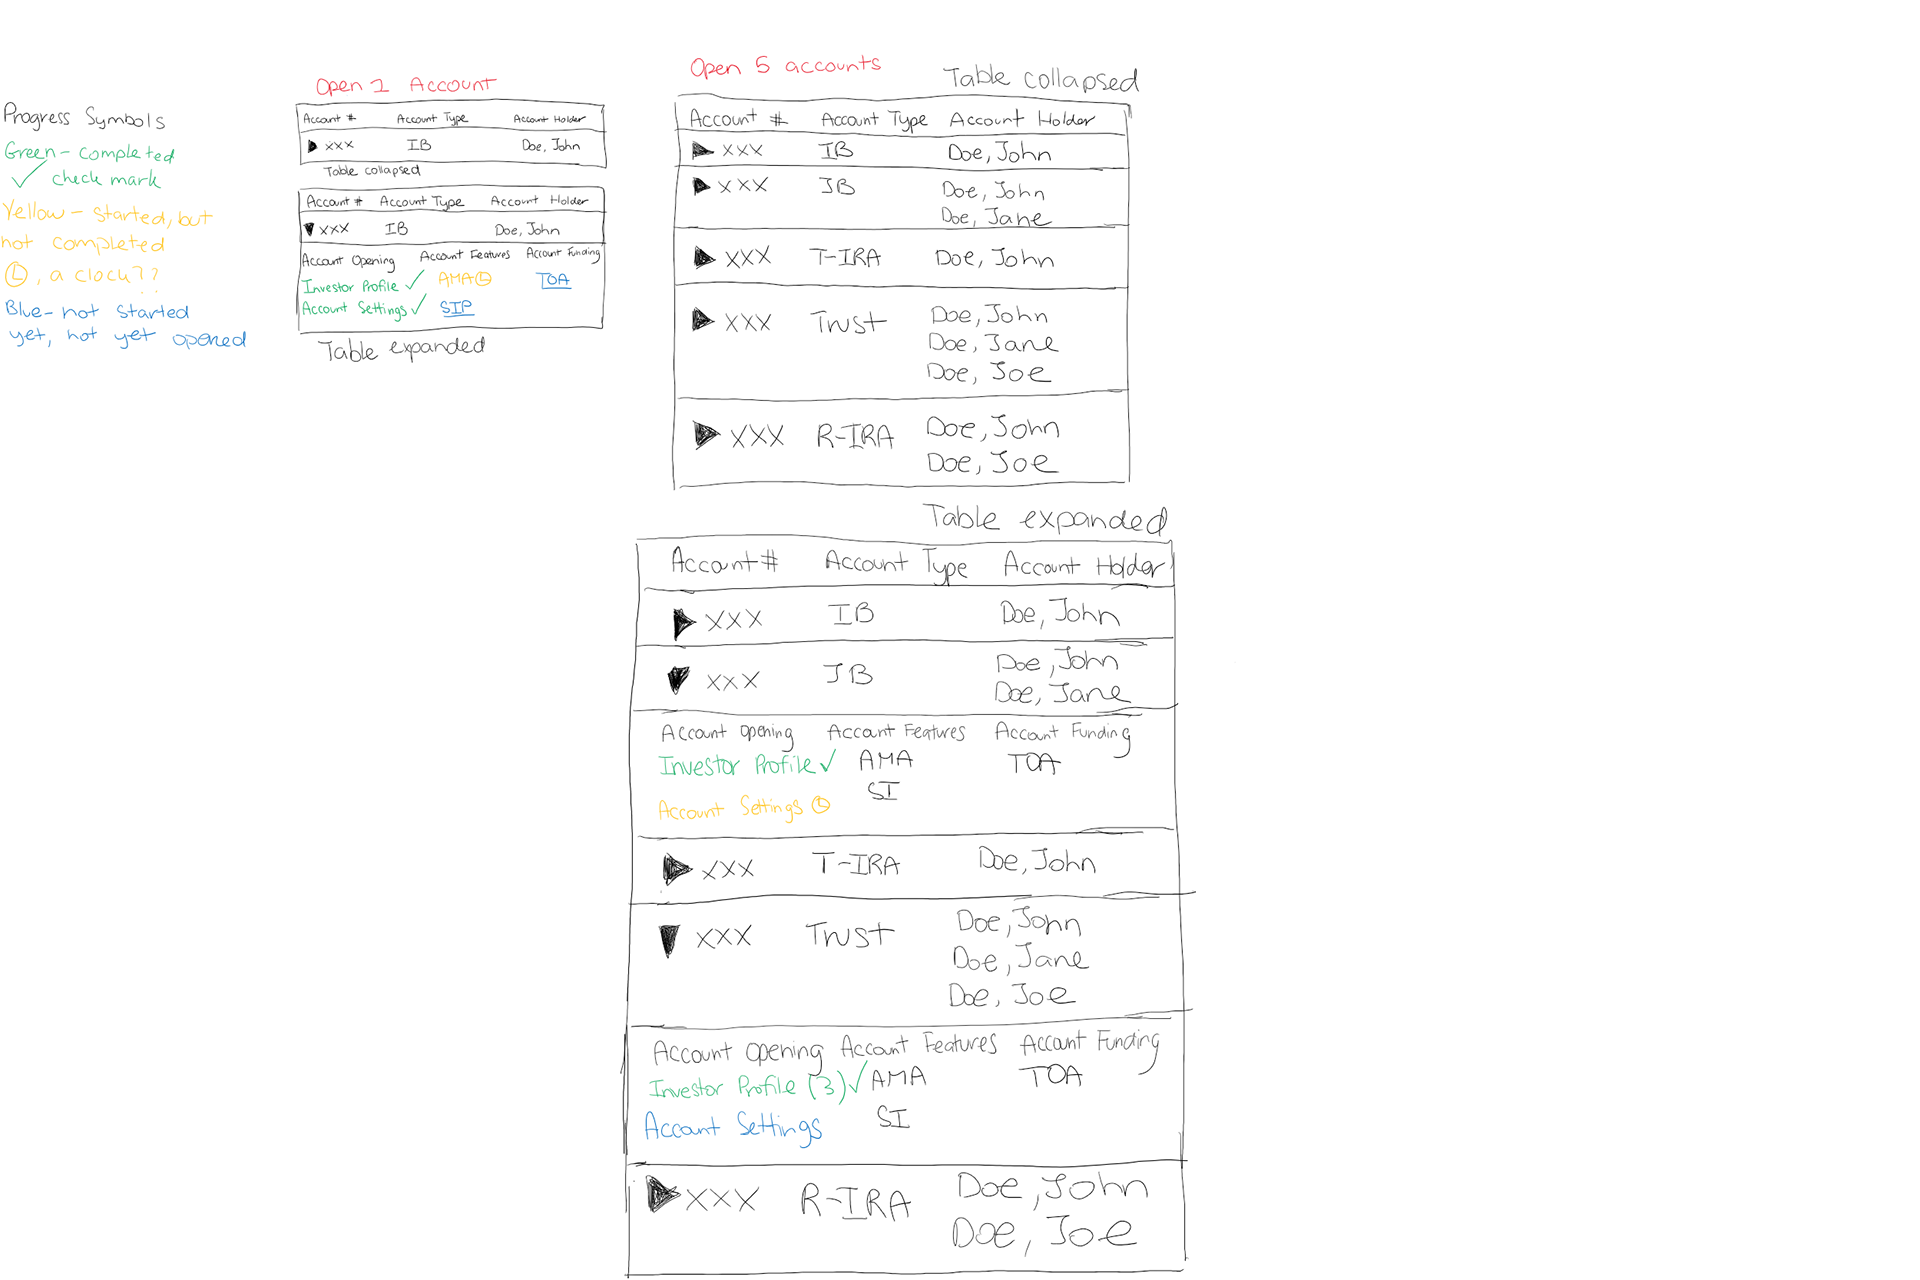 Progress Symbols
Green - completed
✓ check mark
Yellow - started, but
not completed
Ⓛ, a clock??
Blue - not started
yet, not yet opened
Open 1 Account
Account # Account Type Account Holder
▶ XXX IB Doe, John
Table collapsed
Account # Account Type Account Holder
▼ XXX IB Doe, John
Account Opening Account Features Account Funding
Investor Profile ✓ AMA Ⓛ TOA
Account Settings ✓ SIP
Table expanded
Open 5 accounts
Table collapsed
Account # Account Type Account Holder
▶ XXX IB Doe, John
▶ XXX JB Doe, John
Doe, Jane
▶ XXX T-IRA Doe, John
▶ XXX Trust Doe, John
Doe, Jane
Doe, Joe
▶ XXX R-IRA Doe, John
Doe, Joe
Table expanded
Account # Account Type Account Holder
▶ XXX IB Doe, John
▼ XXX JB Doe, John
Doe, Jane
Account Opening Account Features Account Funding
Investor Profile ✓ AMA TOA
SI
Account Settings Ⓛ
▶ XXX T-IRA Doe, John
▼ XXX Trust Doe, John
Doe, Jane
Doe, Joe
Account Opening Account Features Account Funding
Investor Profile (3) ✓ AMA TOA
Account Settings SI
▶ XXX R-IRA Doe, John
Doe, Joe